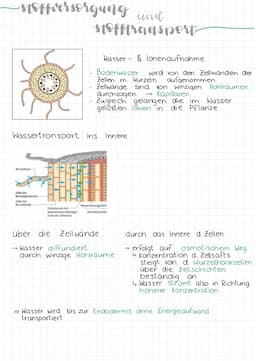 stoffversorgung
und
stofftransport
Wasser- & Ionenaufnahme
- Bodenwasser wird von den Zellwänden der
Zellen m. Wurzeln aufgenommen
- Zellwände sind von winzigen Hohlräumen
durchzogen → Kapillaren
- Zugleich gelangen die im Wasser
gelösten Ionen in die Pflanze
Wassertransport ins Innere
über die Zellwände
→ Wasser diffundiert
durch winzige Hohlräume
durch das Innere d. Zellen
→ erfolgt auf osmotischem Weg
↳ Konzentration d. Zellsafts
steigt von d. Wurzelhaarzellen
über die Zellschichten
beständig an
↳ Wasser strömt also in Richtung
höherer Konzentration
⇒ Wasser wird bis zur Endodermis ohne Energieaufwand
transportiert